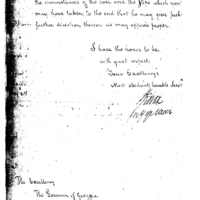 the circumstances of the case and the steps which you
may have taken, to the end that he may give such
further direction thereon as may appear proper.
I have the honor to be,
with great respect,
Your Excellency's
Most obedient, humble Serv't
His Excellency
The Governor of Georgia